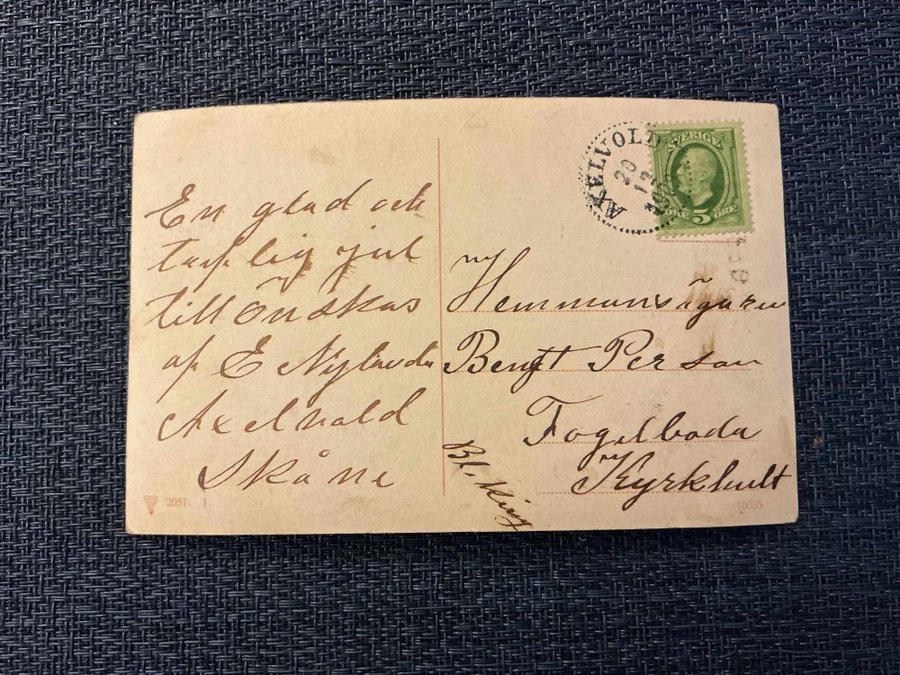 En glad och
lig jul
till Önskas
af E Nylander
Axelvald
Skåne
2051. 1.
AXELVOLD
20
12
SVERIGE
5 ÖRE
Hemmansägare
Bengt Person
Fogelboda
Kyrkhult
Bleking
10035